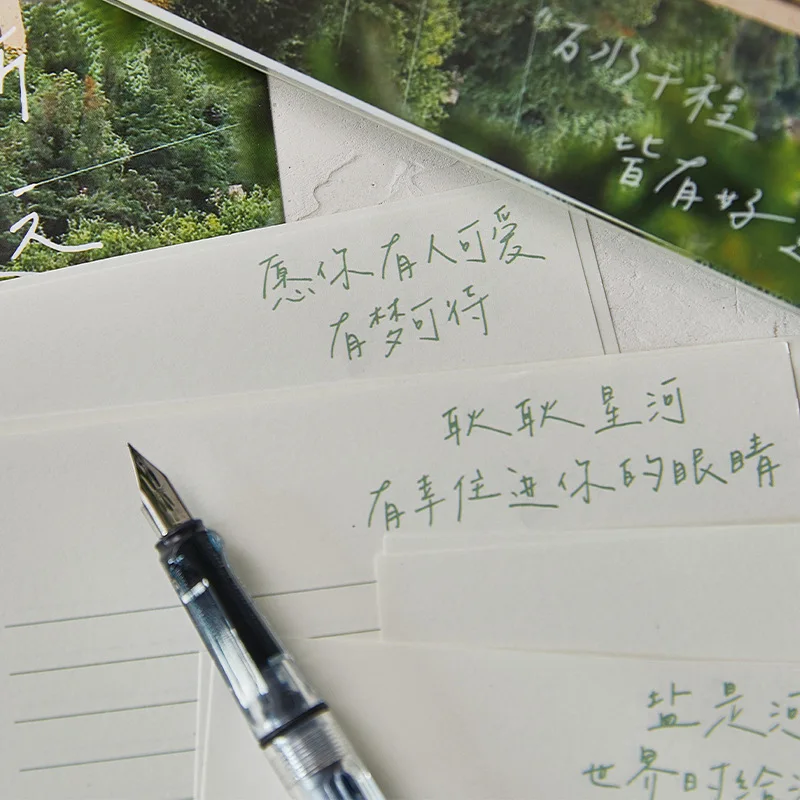 百水千程
皆有好
愿你有人可爱
有梦可待
耿耿星河
有幸住进你的眼睛
盐是河
世界时给